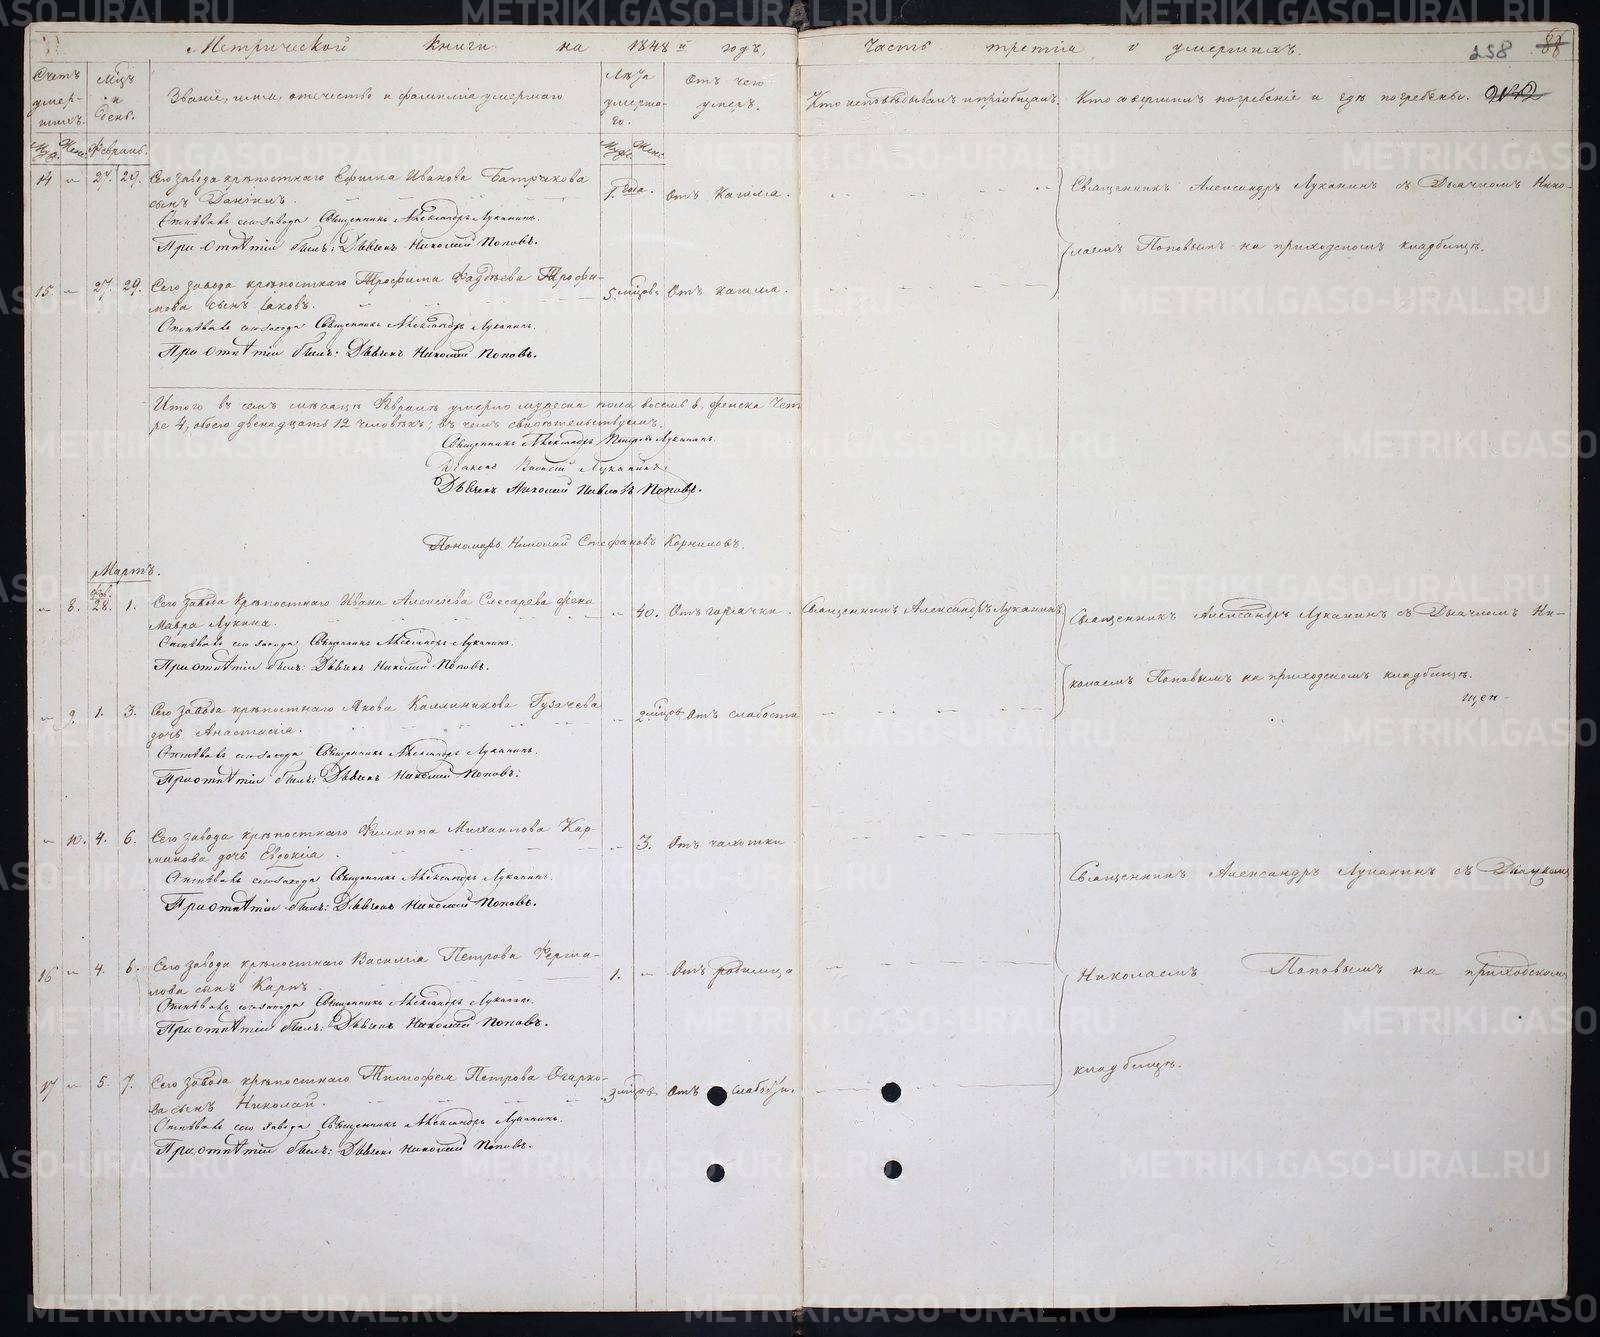 Метрической книги на 1848 й годъ,
Часть третія о умершихъ.
258
88
Счетъ умер-шихъ.
Мцъ и день.
Званіе, имя, отечество и фамилія умершаго
Лѣта умерша-го.
Отъ чего умеръ.
Кто исповѣдывалъ и пріобщалъ.
Кто совершилъ погребеніе и гдѣ погребены.
Муж. Жен. Февраль. Муж. Жен.
14 " 27. 29. Сего завода крѣпостнаго Ефима Иванова Батракова
сынъ Даніилъ. 1. года. Отъ кашля.
Отпѣвалъ сего завода Священникъ Александръ Луканинъ.
При отпѣтіи былъ: Дьячекъ Николай Поповъ.
Священникъ Александръ Луканинъ съ Дьячкомъ Нико-
лаемъ Поповымъ на приходскомъ кладбищѣ.
15. " 27. 29. Сего завода крѣпостнаго Трофима Фаддѣева Трофи-
мова сынъ Іаковъ. 5. мцовъ Отъ кашля.
Отпѣвалъ сего завода Священникъ Александръ Луканинъ.
При отпѣтіи былъ: Дьячекъ Николай Поповъ.
Итого въ семъ мѣсяцѣ Февралѣ умерло мужеска пола восемь 8, женска Чет
ре 4, обоего двенадцать 12 человѣкъ; въ чемъ свидѣтельствуемъ.
Священникъ Александръ Петровъ Луканинъ.
Діаконъ Василій Луканинъ.
Дьячекъ Николай Павловъ Поповъ.
Пономарь Николай Стефановъ Корниловъ.
Мартъ.
Фев.
" 8. 28. 1. Сего завода крѣпостнаго Ивана Алексѣева Слесарева жена
Мавра Лукина. " 40. Отъ горячки. Священникъ Александръ Луканинъ
Отпѣвалъ сего завода Священникъ Александръ Луканинъ.
При отпѣтіи былъ: Дьячекъ Николай Поповъ.
Священникъ Александръ Луканинъ съ Дьячкомъ Ни-
колаемъ Поповымъ на приходскомъ кладбищѣ.
" 9. 1. 3. Сего завода крѣпостнаго Якова Каллиникова Гузачева
дочь Анастасія. " 2. мцов. Отъ слабости
Отпѣвалъ сего завода Священникъ Александръ Луканинъ.
При отпѣтіи былъ: Дьячекъ Николай Поповъ:
" 10. 4. 6. Сего завода крѣпостнаго Филиппа Михаилова Кар-
манова дочь Евдокія. " 3. Отъ чахотки
Отпѣвалъ сего завода Священникъ Александръ Луканинъ.
При отпѣтіи былъ: Дьячекъ Николай Поповъ.
Священникъ Александръ Луканинъ съ Дьячкомъ
16 " 4. 6. Сего завода крѣпостнаго Василія Петрова Ферша-
лова сынъ Карпъ. 1. " Отъ родимца
Отпѣвалъ сего завода Священникъ Александръ Луканинъ.
При отпѣтіи былъ: Дьячекъ Николай Поповъ.
Николаемъ Поповымъ на приходскомъ
17 " 5. 7. Сего завода крѣпостнаго Тимофея Петрова Огарко-
ва сынъ Николай. 3 мцов. Отъ слабости.
Отпѣвалъ сего завода Священникъ Александръ Луканинъ.
При отпѣтіи былъ: Дьячекъ Николай Поповъ.
кладбищѣ.
METRIKI.GASO-URAL.RU